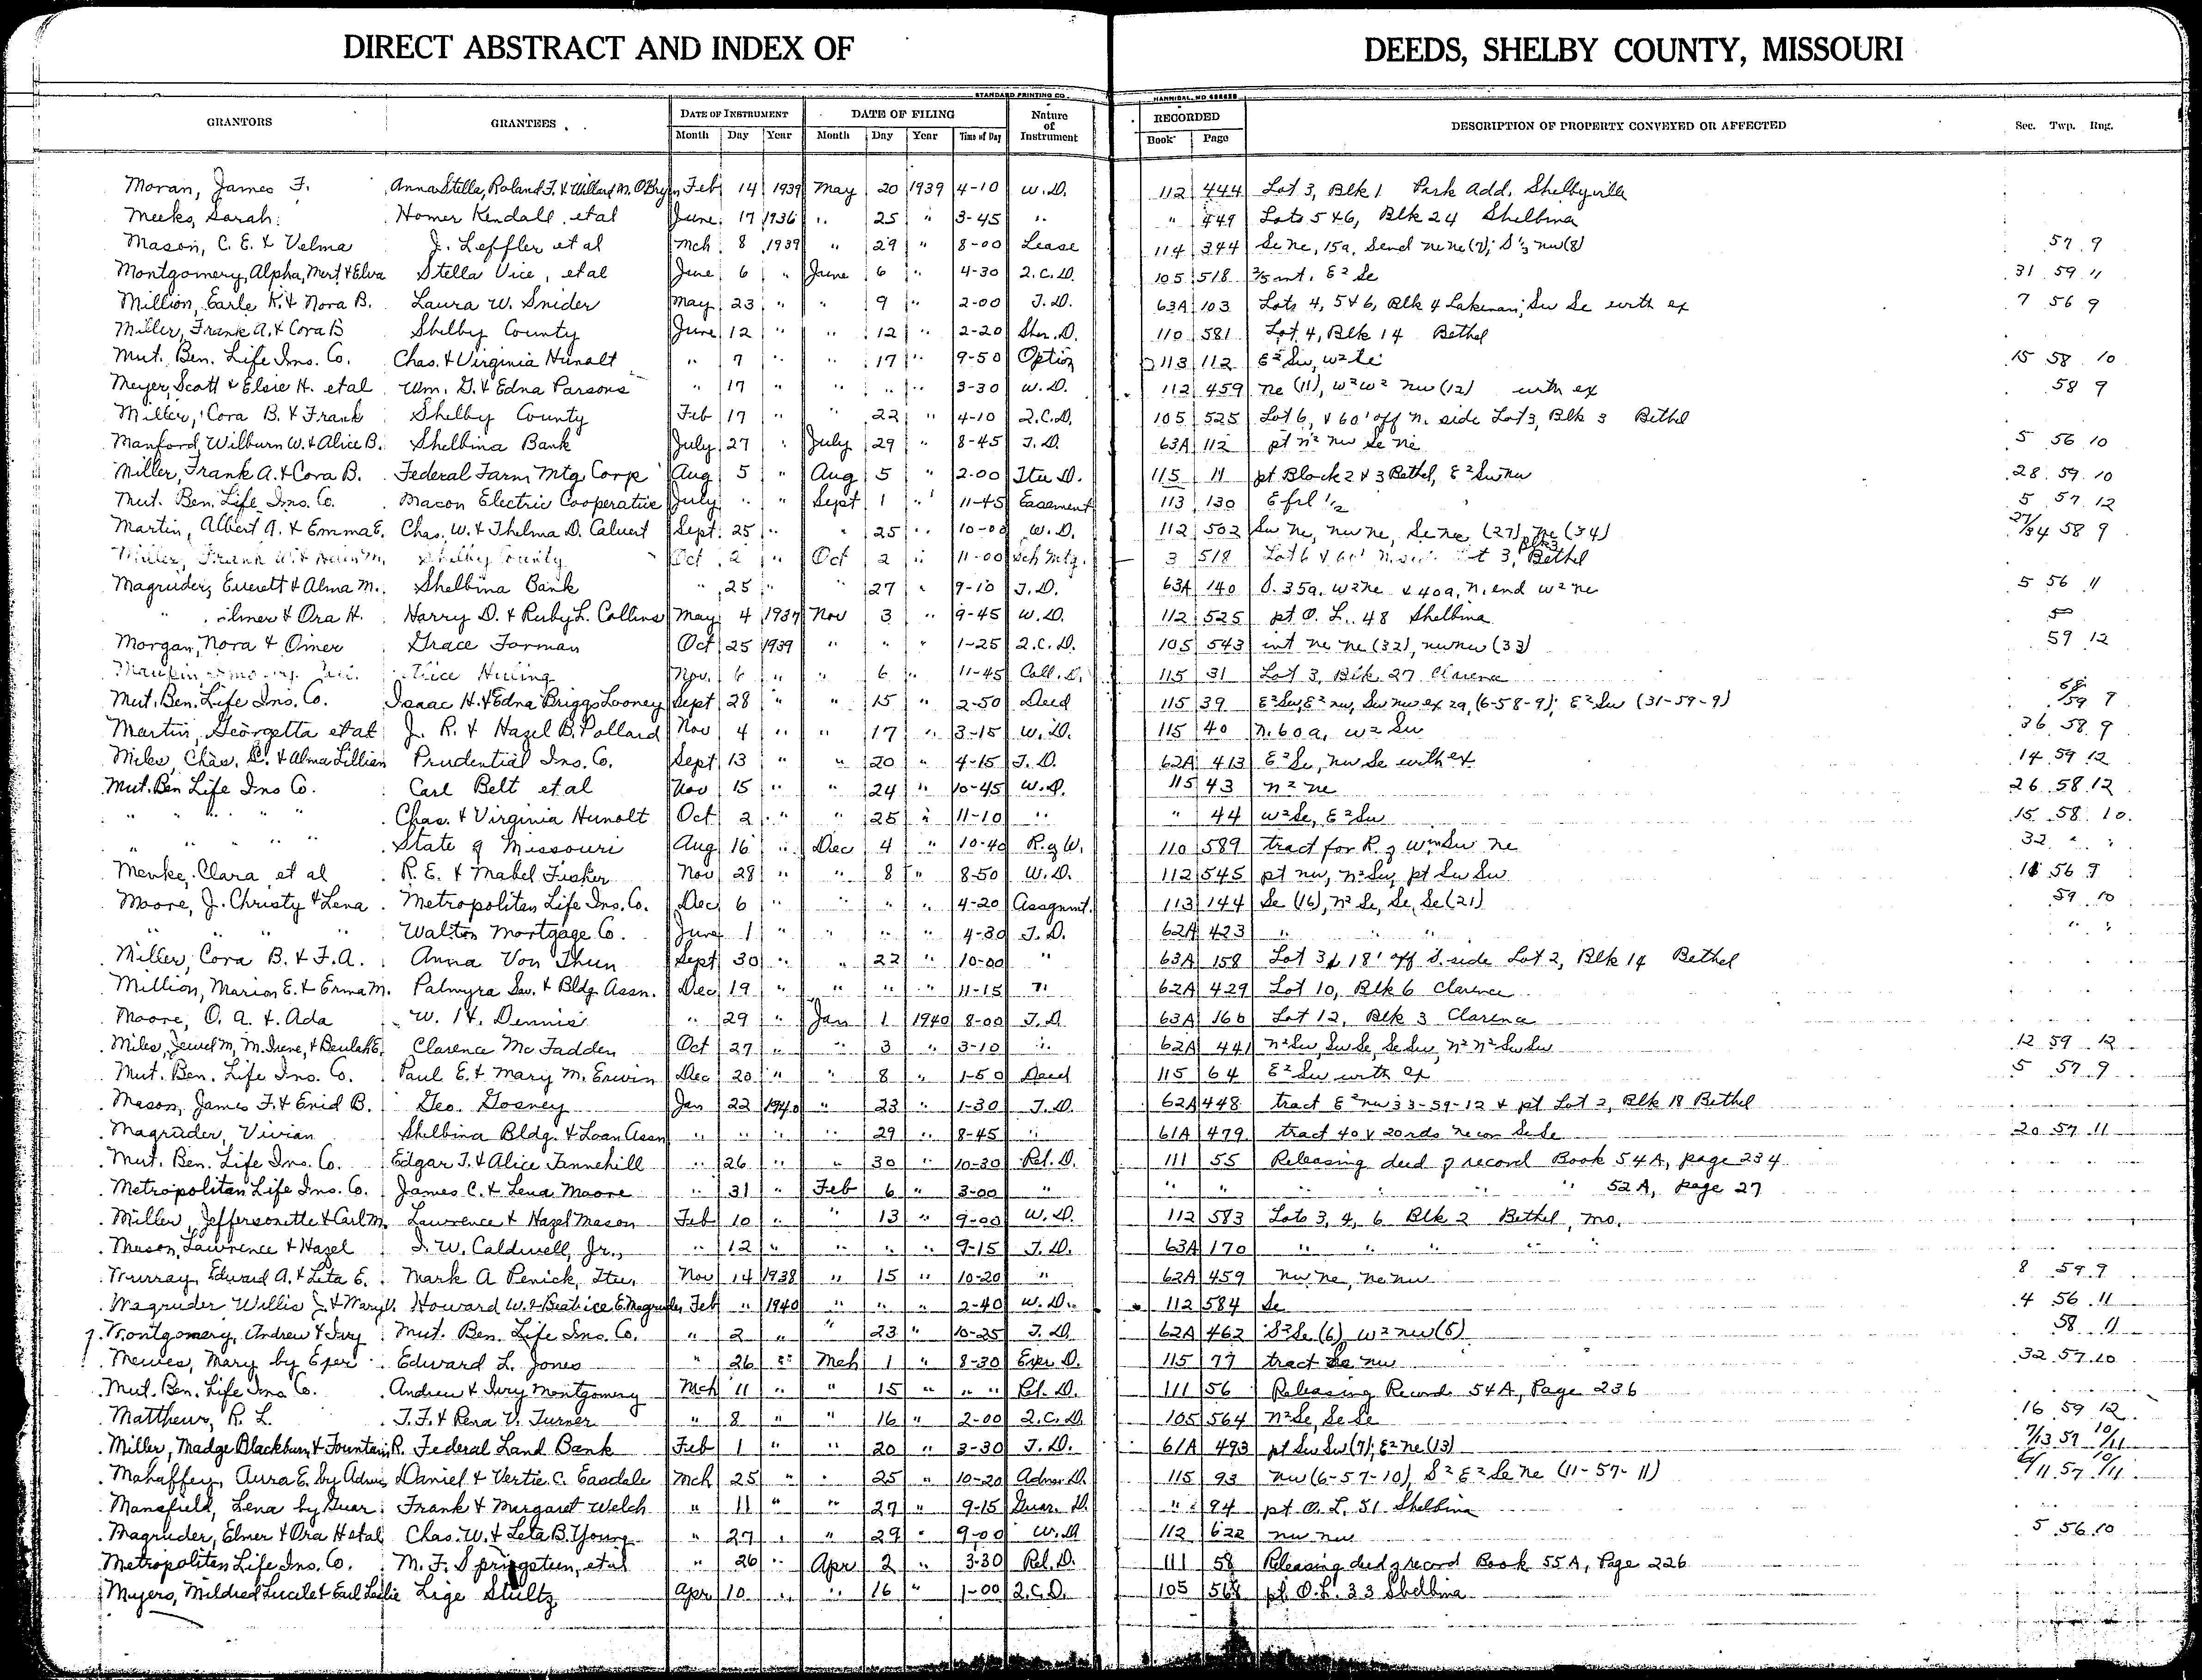 DIRECT ABSTRACT AND INDEX OF DEEDS, SHELBY COUNTY, MISSOURI
STANDARD PRINTING CO. HANNIBAL, MO
GRANTORS GRANTEES DATE OF INSTRUMENT DATE OF FILING Nature of Instrument RECORDED DESCRIPTION OF PROPERTY CONVEYED OR AFFECTED Sec. Twp. Rng.
Month Day Year Month Day Year Time of Day Book Page
Moran, James F. Anna Stella, Roland F. & Willard M. O'Bryen Feb 14 1939 May 20 1939 4-10 W.D. 112 444 Lot 3, Blk 1 Park Add, Shelbyville
Meeks, Sarah Homer Kendall, et al June 17 1936 " 25 " 3-45 " " 449 Lots 5 & 6, Blk 24 Shelbina
Mason, C. E. & Velma J. Leffler et al Mch 8 1939 " 29 " 8-00 Lease 114 344 Se ne, 15a, Send ne ne (7); S⅓ nw (8) 57 9
Montgomery, Alpha, Mert & Elva Stella Vice, et al June 6 " June 6 " 4-30 Q.C.D. 105 518 int. E² Se 31 59 11
Million, Earle K. & Nora B. Laura W. Snider May 23 " " 9 " 2-00 T.D. 63A 103 Lots 4, 5 & 6, Blk 4 Lakenan; Sw Se with ex 7 56 9
Miller, Frank A. & Cora B Shelby County June 12 " " 12 " 2-20 Sher. D. 110 581 Lot 4, Blk 14 Bethel
Mut. Ben. Life Ins. Co. Chas. & Virginia Hunolt " 7 " " 17 " 9-50 Option 113 112 E² Sw, W² Se 15 58 10
Meyer, Scott & Elsie H. et al Wm. G. & Edna Parsons " 17 " " " " 3-30 W.D. 112 459 ne (11), W² W² nw (12) with ex 58 9
Miller, Cora B. & Frank Shelby County Feb 17 " " 22 " 4-10 Q.C.D. 105 525 Lot 6, & 60' off n. side Lot 3, Blk 3 Bethel
Manford, Wilburn W. & Alice B. Shelbina Bank July 27 " July 29 " 8-45 T.D. 63A 112 pt n² nw Se ne 5 56 10
Miller, Frank A. & Cora B. Federal Farm Mtg. Corp Aug 5 " Aug 5 " 2-00 Ttee D. 115 11 pt Block 2 & 3 Bethel, E² Sw nw 28 59 10
Mut. Ben. Life Ins. Co. Macon Electric Cooperative July " " Sept 1 " 11-45 Easement 113 130 E frl ½ 5 57 12
Martin, Albert A. & Emma E. Chas. W. & Thelma D. Calvert Sept 25 " " 25 " 10-00 W.D. 112 502 Sw ne, nw ne, Se ne (27), ne (34) 27/34 58 9
Miller, Frank Shelby County Oct 2 " Oct 2 " 11-00 Sch Mtg. 3 518 Lot 6 & 60' n. side Lot 3, Blk 3 Bethel
Magruder, Everett & Alma M. Shelbina Bank " 25 " " 27 " 9-10 T.D. 63A 140 S. 35a. W² ne & 40a, n. end W² ne 5 56 11
" Elmer & Ora H. Harry D. & Ruby L. Collins May 4 1937 Nov 3 " 9-45 W.D. 112 525 pt O. L. 48 Shelbina
Morgan, Nora & Omer Grace Forman Oct 25 1939 " " " 1-25 Q.C.D. 105 543 int ne ne (32), nw nw (33) 59 12
Maupin Huling Nov. 6 " " 6 " 11-45 Coll. D. 115 31 Lot 3, Blk 27 Clarence
Mut. Ben. Life Ins. Co. Isaac H. & Edna Briggs Looney Sept 28 " " 15 " 2-50 Deed 115 39 E² Sw, E² nw, Sw nw ex 2a, (6-58-9); E² Sw (31-59-9) 58/59 9
Martin, Georgetta et al J. R. & Hazel B. Pollard Nov 4 " " 17 " 3-15 W.D. 115 40 n. 60 a. W² Sw 36 58 9
Miles, Chas. E. & Alma Lillian Prudential Ins. Co. Sept 13 " " 20 " 4-15 T.D. 62A 413 E² Se, nw Se with ex 14 59 12
Mut. Ben Life Ins Co. Carl Belt et al Nov 15 " " 24 " 10-45 W.D. 115 43 n² ne 26 58 12
" " " " Chas. & Virginia Hunolt Oct 2 " " 25 " 11-10 " " 44 W² Se, E² Sw 15 58 10
" " " " State of Missouri Aug 16 " Dec 4 " 10-40 R. of W. 110 589 tract for R. of W in Sw ne 32 " "
Menke, Clara et al R. E. & Mabel Fisher Nov 28 " " 8 " 8-50 W.D. 112 545 pt nw, n² Sw, pt Sw Sw 56 9
Moore, J. Christy & Lena Metropolitan Life Ins. Co. Dec 6 " " " " 4-20 Assgnmt. 113 144 Se (16), n² Se, Se, Se (21) 59 10
" " " Walton Mortgage Co. June 1 " " " " 4-30 T.D. 62A 423 " " " " "
Miller, Cora B. & F.A. Anna Von Thun Sept 30 " " 22 " 10-00 " 63A 158 Lot 3 & 18' off S. side Lot 2, Blk 14 Bethel
Million, Marion E. & Erma M. Palmyra Sav. & Bldg. Assn. Dec 19 " " " " 11-15 " 62A 429 Lot 10, Blk 6 Clarence
Moore, O. A. & Ada W. H. Dennis " 29 " Jan 1 1940 8-00 T.D. 63A 160 Lot 12, Blk 3 Clarence
Miles, Jewel M, M. Irene, & Beulah E. Clarence McFadden Oct 27 " " 3 " 3-10 " 62A 441 n² Sw, Sw Se, Se Sw, n² n² Sw Sw 12 59 12
Mut. Ben. Life Ins. Co. Paul E. & Mary M. Erwin Dec 20 " " 8 " 1-50 Deed 115 64 E² Sw with ex 5 57 9
Mason, James F. & Enid B. Geo. Gosney Jan 22 1940 " 23 " 1-30 T.D. 62A 448 tract E² nw 33-59-12 & pt Lot 2, Blk 18 Bethel
Magruder, Vivian Shelbina Bldg. & Loan Assn " " " " 29 " 8-45 " 61A 479 tract 40 x 20 rds ne cor Se Se 20 57 11
Mut. Ben. Life Ins. Co. Edgar T. & Alice Tannehill " 26 " " 30 " 10-30 Rel. D. 111 55 Releasing deed of record Book 54A, page 234
Metropolitan Life Ins. Co. James C. & Lena Moore " 31 " Feb 6 " 3-00 " " " " " " " 52A, page 27
Miller, Jeffersonette & Carl M. Lawrence & Hazel Mason Feb 10 " " 13 " 9-00 W.D. 112 583 Lots 3, 4, 6 Blk 2 Bethel, Mo.
Mason, Lawrence & Hazel I. W. Caldwell, Jr., " 12 " " " " 9-15 T.D. 63A 170 " " " " "
Murray, Edward A. & Leta E. Mark A Penick, Ttee, Nov 14 1938 " 15 " 10-20 " 62A 459 nw ne, ne nw 8 59 9
Magruder Willis J. & Mary V. Howard W. & Beatrice E. Magruder Feb " 1940 " " " 2-40 W.D. 112 584 Se 4 56 11
Montgomery, Andrew & Ivy Mut. Ben. Life Ins. Co. " 2 " " 23 " 10-25 T.D. 62A 462 S² Se (6), W² nw (5) 58 11
Mewes, Mary by Exer Edward L. Jones " 26 " Mch 1 " 8-30 Exr D. 115 77 tract Se nw 32 57 10
Mut. Ben. Life Ins. Co. Andrew & Ivry Montgomery Mch 11 " " 15 " " " Rel. D. 111 56 Releasing Record 54A, Page 236
Matthews, R. L. T. F. & Rena V. Turner " 8 " " 16 " 2-00 Q.C.D. 105 564 n² Se, Se Se 16 59 12
Miller, Madge Blackburn & Fountain R. Federal Land Bank Feb 1 " " 20 " 3-30 T.D. 61A 493 pt Sw Sw (7); E² ne (13) 7/13 57 10/11
Mahaffey, Aura E. by Admr Daniel & Vertie C. Easdale Mch 25 " " 25 " 10-20 Admr D. 115 93 nw (6-57-10), S² E² Se ne (11-57-11) 6/11 57 10/11
Mansfield, Lena by Guar. Frank & Margaret Welch " 11 " " 27 " 9-15 Guar. D. " 94 pt O. L. 51 Shelbina
Magruder, Elmer & Ora H et al Chas. W. & Leta B. Young " 27 " " 29 " 9-00 W.D 112 622 nw nw 5 56 10
Metropolitan Life Ins. Co. M. F. Springsteen, et al " 26 " Apr 2 " 3-30 Rel. D. 111 58 Releasing deed of record Book 55A, Page 226
Myers, Mildred Lucile & Earl Leslie Lige Stultz Apr 10 " " 16 " 1-00 Q.C.D. 105 568 pt O. L. 33 Shelbina